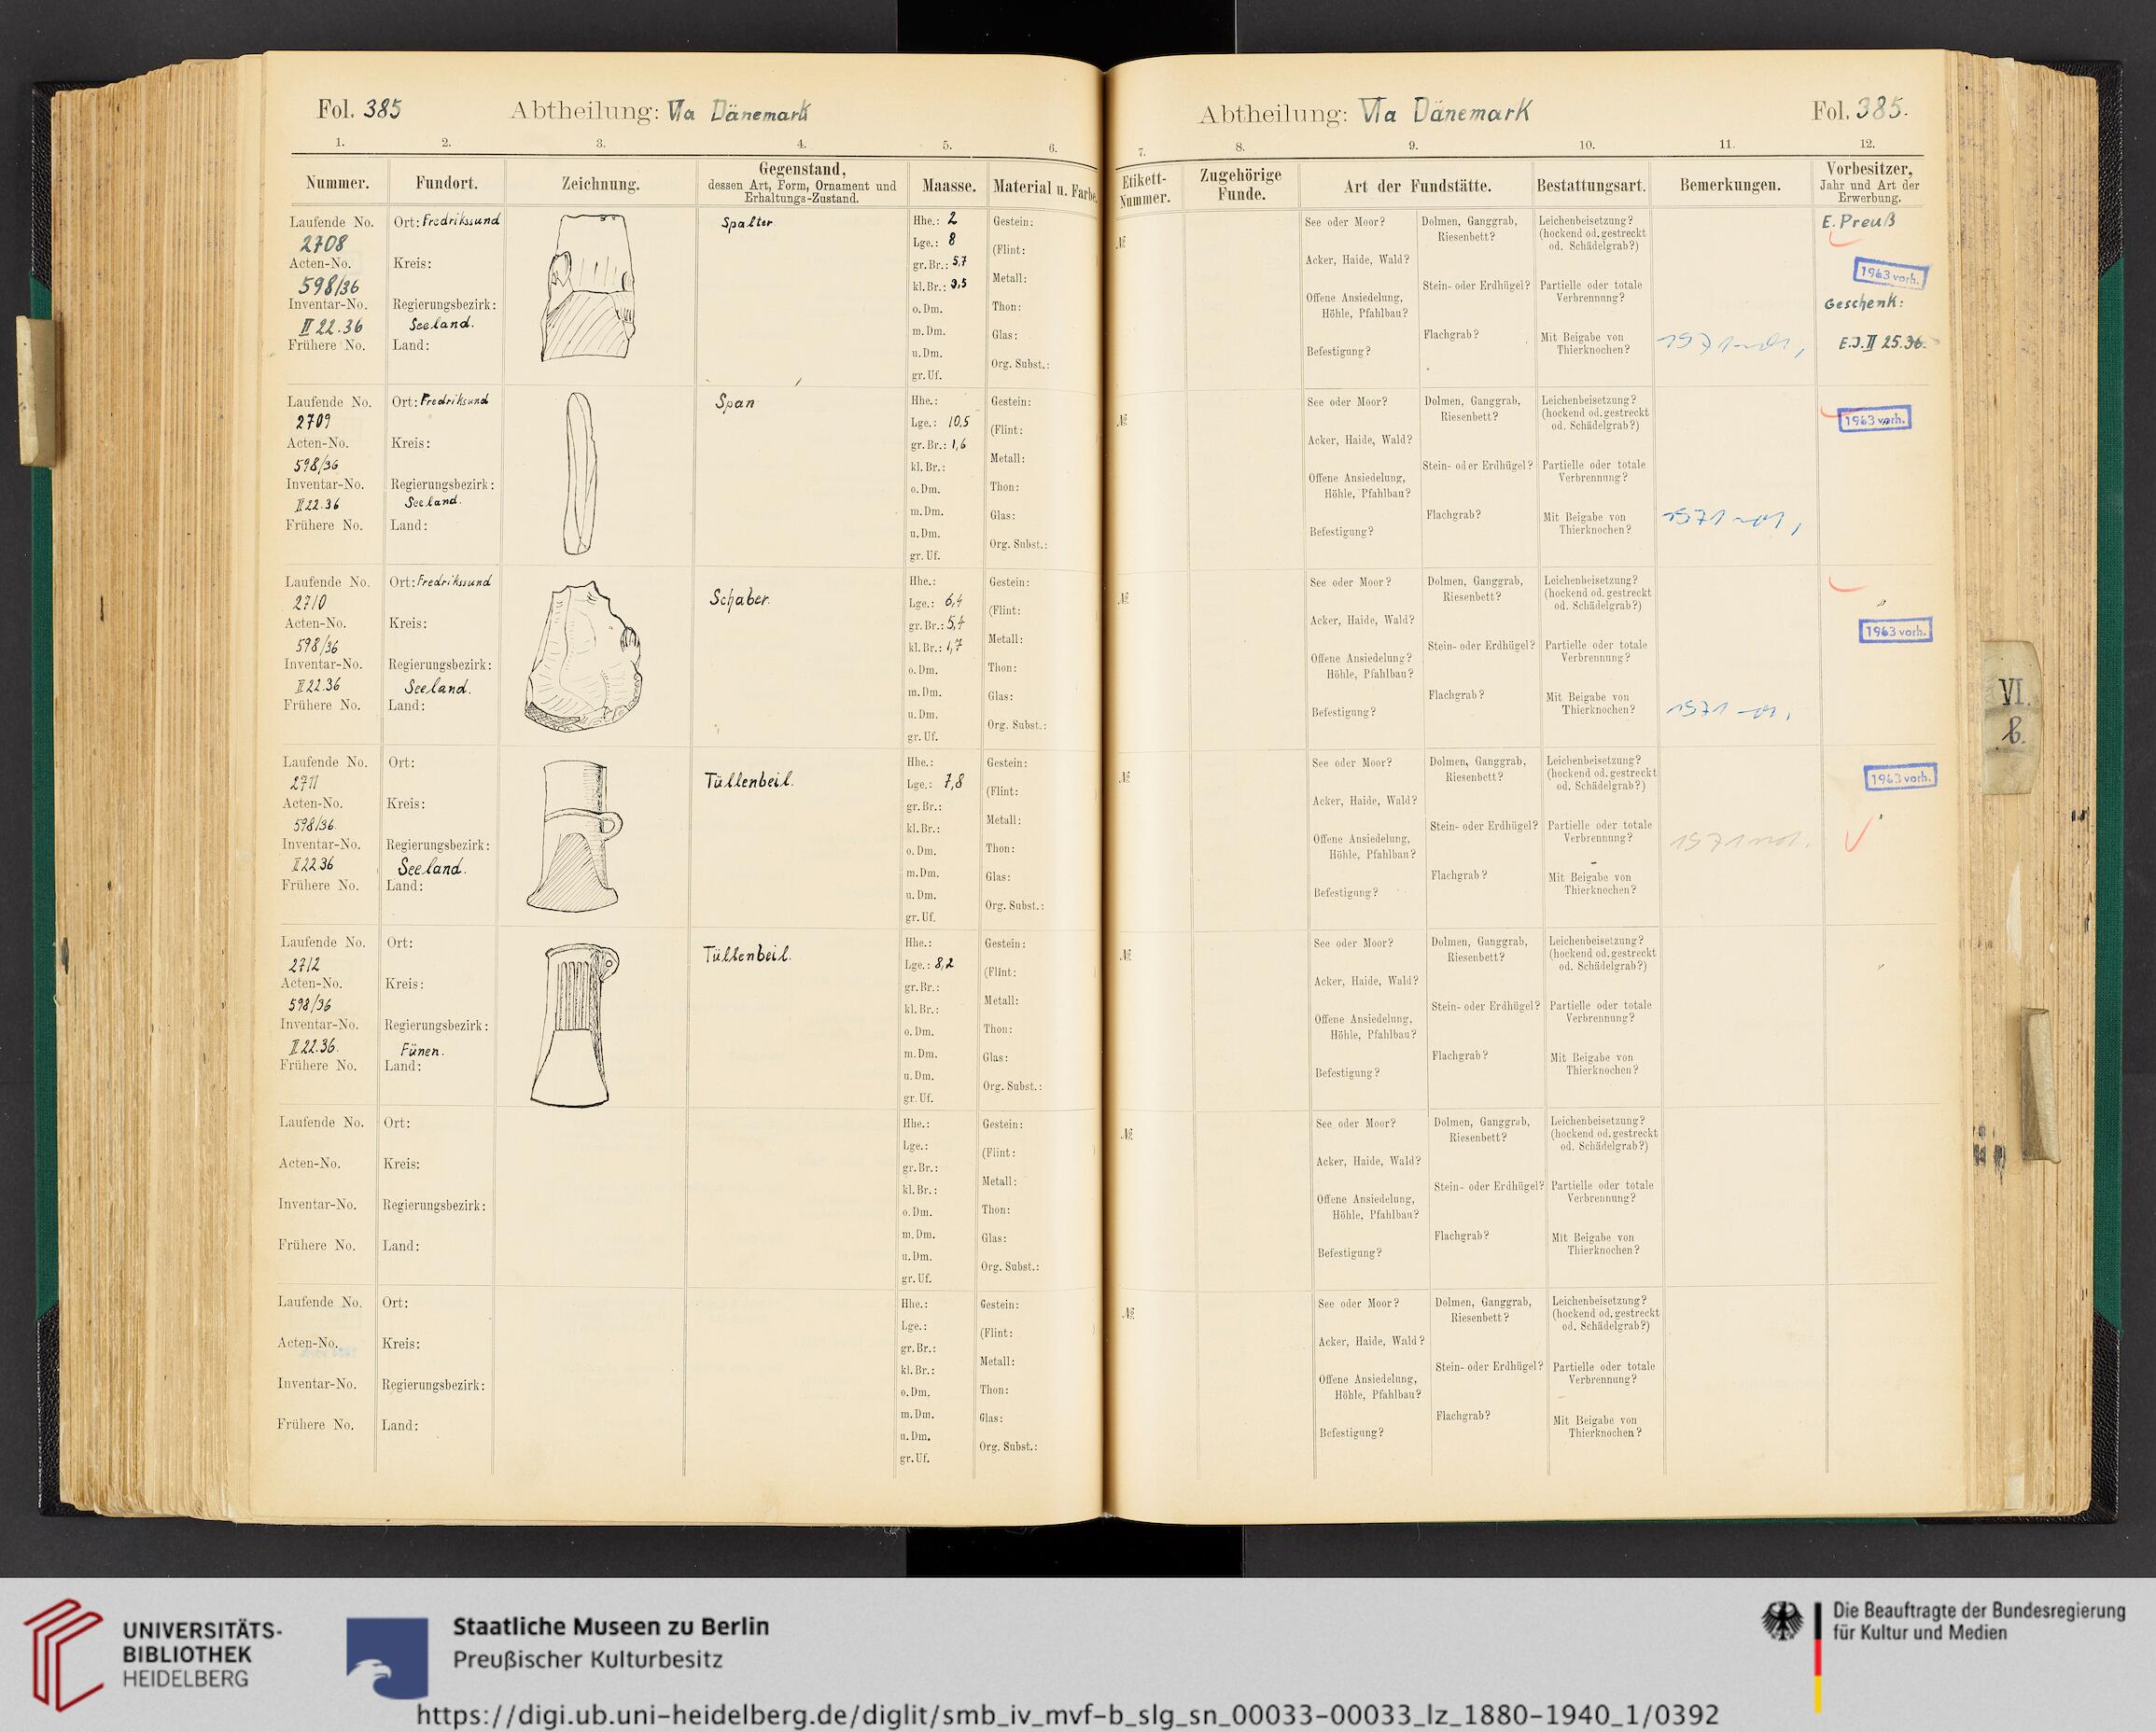 Fol. 385
Abtheilung: VIa Dänemark
1. 2. 3. 4. 5. 6.
Nummer. Fundort. Zeichnung. Gegenstand, dessen Art, Form, Ornament und Erhaltungs-Zustand. Maasse. Material u. Farbe.
Abtheilung: VIa Dänemark
Fol. 385.
7. 8. 9. 10. 11. 12.
Etikett-Nummer. Zugehörige Funde. Art der Fundstätte. Bestattungsart. Bemerkungen. Vorbesitzer, Jahr und Art der Erwerbung.
Laufende No.
2708
Acten-No.
598/36
Inventar-No.
II 22.36
Frühere No.
Ort: Fredrikssund
Kreis:
Regierungsbezirk:
Seeland.
Land:
Spalter
Hhe.: 2
Lge.: 8
gr. Br.: 5,7
kl. Br.: 3,5
o. Dm.
m. Dm.
u. Dm.
gr. Uf.
Gestein:
(Flint:
Metall:
Thon:
Glas:
Org. Subst.:
№
See oder Moor?
Acker, Haide, Wald?
Offene Ansiedelung,
Höhle, Pfahlbau?
Befestigung?
Dolmen, Ganggrab,
Riesenbett?
Stein- oder Erdhügel?
Flachgrab?
Leichenbeisetzung?
(hockend od. gestreckt
od. Schädelgrab?)
Partielle oder totale
Verbrennung?
Mit Beigabe von
Thierknochen?
E. Preuß
1963 vorh.
Geschenk:
E.J. II 25.36.
Laufende No.
2709
Acten-No.
598/36
Inventar-No.
II 22.36
Frühere No.
Ort: Fredriksund
Kreis:
Regierungsbezirk:
Seeland.
Land:
Span
Hhe.:
Lge.: 10,5
gr. Br.: 1,6
kl. Br.:
o. Dm.
m. Dm.
u. Dm.
gr. Uf.
Gestein:
(Flint:
Metall:
Thon:
Glas:
Org. Subst.:
№
See oder Moor?
Acker, Haide, Wald?
Offene Ansiedelung,
Höhle, Pfahlbau?
Befestigung?
Dolmen, Ganggrab,
Riesenbett?
Stein- oder Erdhügel?
Flachgrab?
Leichenbeisetzung?
(hockend od. gestreckt
od. Schädelgrab?)
Partielle oder totale
Verbrennung?
Mit Beigabe von
Thierknochen?
1963 vorh.
Laufende No.
2710
Acten-No.
598/36
Inventar-No.
II 22.36
Frühere No.
Ort: Fredrikssund
Kreis:
Regierungsbezirk:
Seeland.
Land:
Schaber.
Hhe.:
Lge.: 6,4
gr. Br.: 5,4
kl. Br.: 1,7
o. Dm.
m. Dm.
u. Dm.
gr. Uf.
Gestein:
(Flint:
Metall:
Thon:
Glas:
Org. Subst.:
№
See oder Moor?
Acker, Haide, Wald?
Offene Ansiedelung?
Höhle, Pfahlbau?
Befestigung?
Dolmen, Ganggrab,
Riesenbett?
Stein- oder Erdhügel?
Flachgrab?
Leichenbeisetzung?
(hockend od. gestreckt
od. Schädelgrab?)
Partielle oder totale
Verbrennung?
Mit Beigabe von
Thierknochen?
1963 vorh.
VI.
b.
Laufende No.
2711
Acten-No.
598/36
Inventar-No.
II 22.36
Frühere No.
Ort:
Kreis:
Regierungsbezirk:
Seeland.
Land:
Tüllenbeil.
Hhe.:
Lge.: 7,8
gr. Br.:
kl. Br.:
o. Dm.
m. Dm.
u. Dm.
gr. Uf.
Gestein:
(Flint:
Metall:
Thon:
Glas:
Org. Subst.:
№
See oder Moor?
Acker, Haide, Wald?
Offene Ansiedelung,
Höhle, Pfahlbau?
Befestigung?
Dolmen, Ganggrab,
Riesenbett?
Stein- oder Erdhügel?
Flachgrab?
Leichenbeisetzung?
(hockend od. gestreckt
od. Schädelgrab?)
Partielle oder totale
Verbrennung?
Mit Beigabe von
Thierknochen?
1963 vorh.
Laufende No.
2712
Acten-No.
598/36
Inventar-No.
II 22.36.
Frühere No.
Ort:
Kreis:
Regierungsbezirk:
Fünen.
Land:
Tüllenbeil.
Hhe.:
Lge.: 8,2
gr. Br.:
kl. Br.:
o. Dm.
m. Dm.
u. Dm.
gr. Uf.
Gestein:
(Flint:
Metall:
Thon:
Glas:
Org. Subst.:
№
See oder Moor?
Acker, Haide, Wald?
Offene Ansiedelung,
Höhle, Pfahlbau?
Befestigung?
Dolmen, Ganggrab,
Riesenbett?
Stein- oder Erdhügel?
Flachgrab?
Leichenbeisetzung?
(hockend od. gestreckt
od. Schädelgrab?)
Partielle oder totale
Verbrennung?
Mit Beigabe von
Thierknochen?
Laufende No.
Acten-No.
Inventar-No.
Frühere No.
Ort:
Kreis:
Regierungsbezirk:
Land:
Hhe.:
Lge.:
gr. Br.:
kl. Br.:
o. Dm.
m. Dm.
u. Dm.
gr. Uf.
Gestein:
(Flint:
Metall:
Thon:
Glas:
Org. Subst.:
№
See oder Moor?
Acker, Haide, Wald?
Offene Ansiedelung,
Höhle, Pfahlbau?
Befestigung?
Dolmen, Ganggrab,
Riesenbett?
Stein- oder Erdhügel?
Flachgrab?
Leichenbeisetzung?
(hockend od. gestreckt
od. Schädelgrab?)
Partielle oder totale
Verbrennung?
Mit Beigabe von
Thierknochen?
Laufende No.
Acten-No.
Inventar-No.
Frühere No.
Ort:
Kreis:
Regierungsbezirk:
Land:
Hhe.:
Lge.:
gr. Br.:
kl. Br.:
o. Dm.
m. Dm.
u. Dm.
gr. Uf.
Gestein:
(Flint:
Metall:
Thon:
Glas:
Org. Subst.:
№
See oder Moor?
Acker, Haide, Wald?
Offene Ansiedelung,
Höhle, Pfahlbau?
Befestigung?
Dolmen, Ganggrab,
Riesenbett?
Stein- oder Erdhügel?
Flachgrab?
Leichenbeisetzung?
(hockend od. gestreckt
od. Schädelgrab?)
Partielle oder totale
Verbrennung?
Mit Beigabe von
Thierknochen?
UNIVERSITÄTS-
BIBLIOTHEK
HEIDELBERG
Staatliche Museen zu Berlin
Preußischer Kulturbesitz
Die Beauftragte der Bundesregierung
für Kultur und Medien
https://digi.ub.uni-heidelberg.de/diglit/smb_iv_mvf-b_slg_sn_00033-00033_lz_1880-1940_1/0392